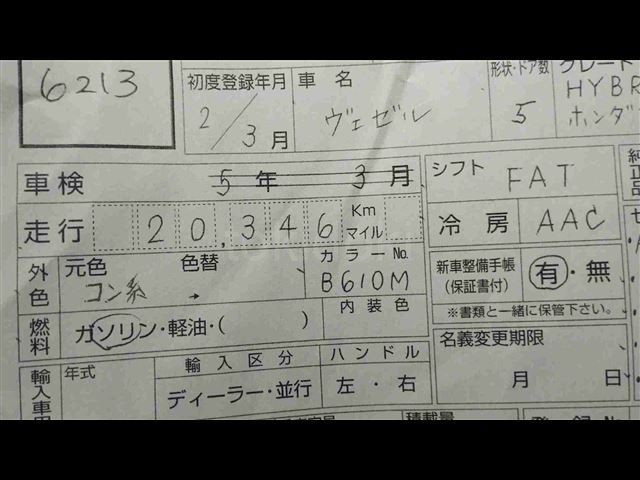 6213
初度登録年月
2/3月
車名
ヴェゼル
形状・ドア数
5
グレード
HYBR
ホンダ
車検
5年 3月
シフト
FAT
走行
20,346
Km
マイル
冷房
AAC
外色
元色 色替
コン系 →
カラーNo.
B610M
新車整備手帳
(保証書付)
有・無
※書類と一緒に保管下さい。
内装色
燃料
ガソリン・軽油・( )
名義変更期限
月 日
輸入車
年式
輸入区分
ディーラー・並行
ハンドル
左・右
積載量